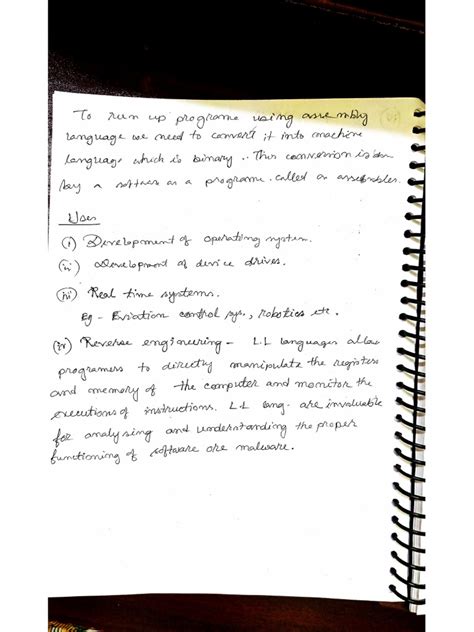 To run up programe using assembly
language we need to convert it into machine
language which is binary .. This conversion is
by a as a programe. called an
Uses
(i) Development of operating system.
(ii) Development of device drives.
(iii) Real time systems.
Eg - Eviation control sys., robotics etc.
(iv) Reverse engineering - L.L languages allow
programess to directly manipulate the registess
and memory of the computer and monitor the
executions of instructions. L.L lang. are invaluable
for analysing and understanding the proper
functioning of software ore malware.